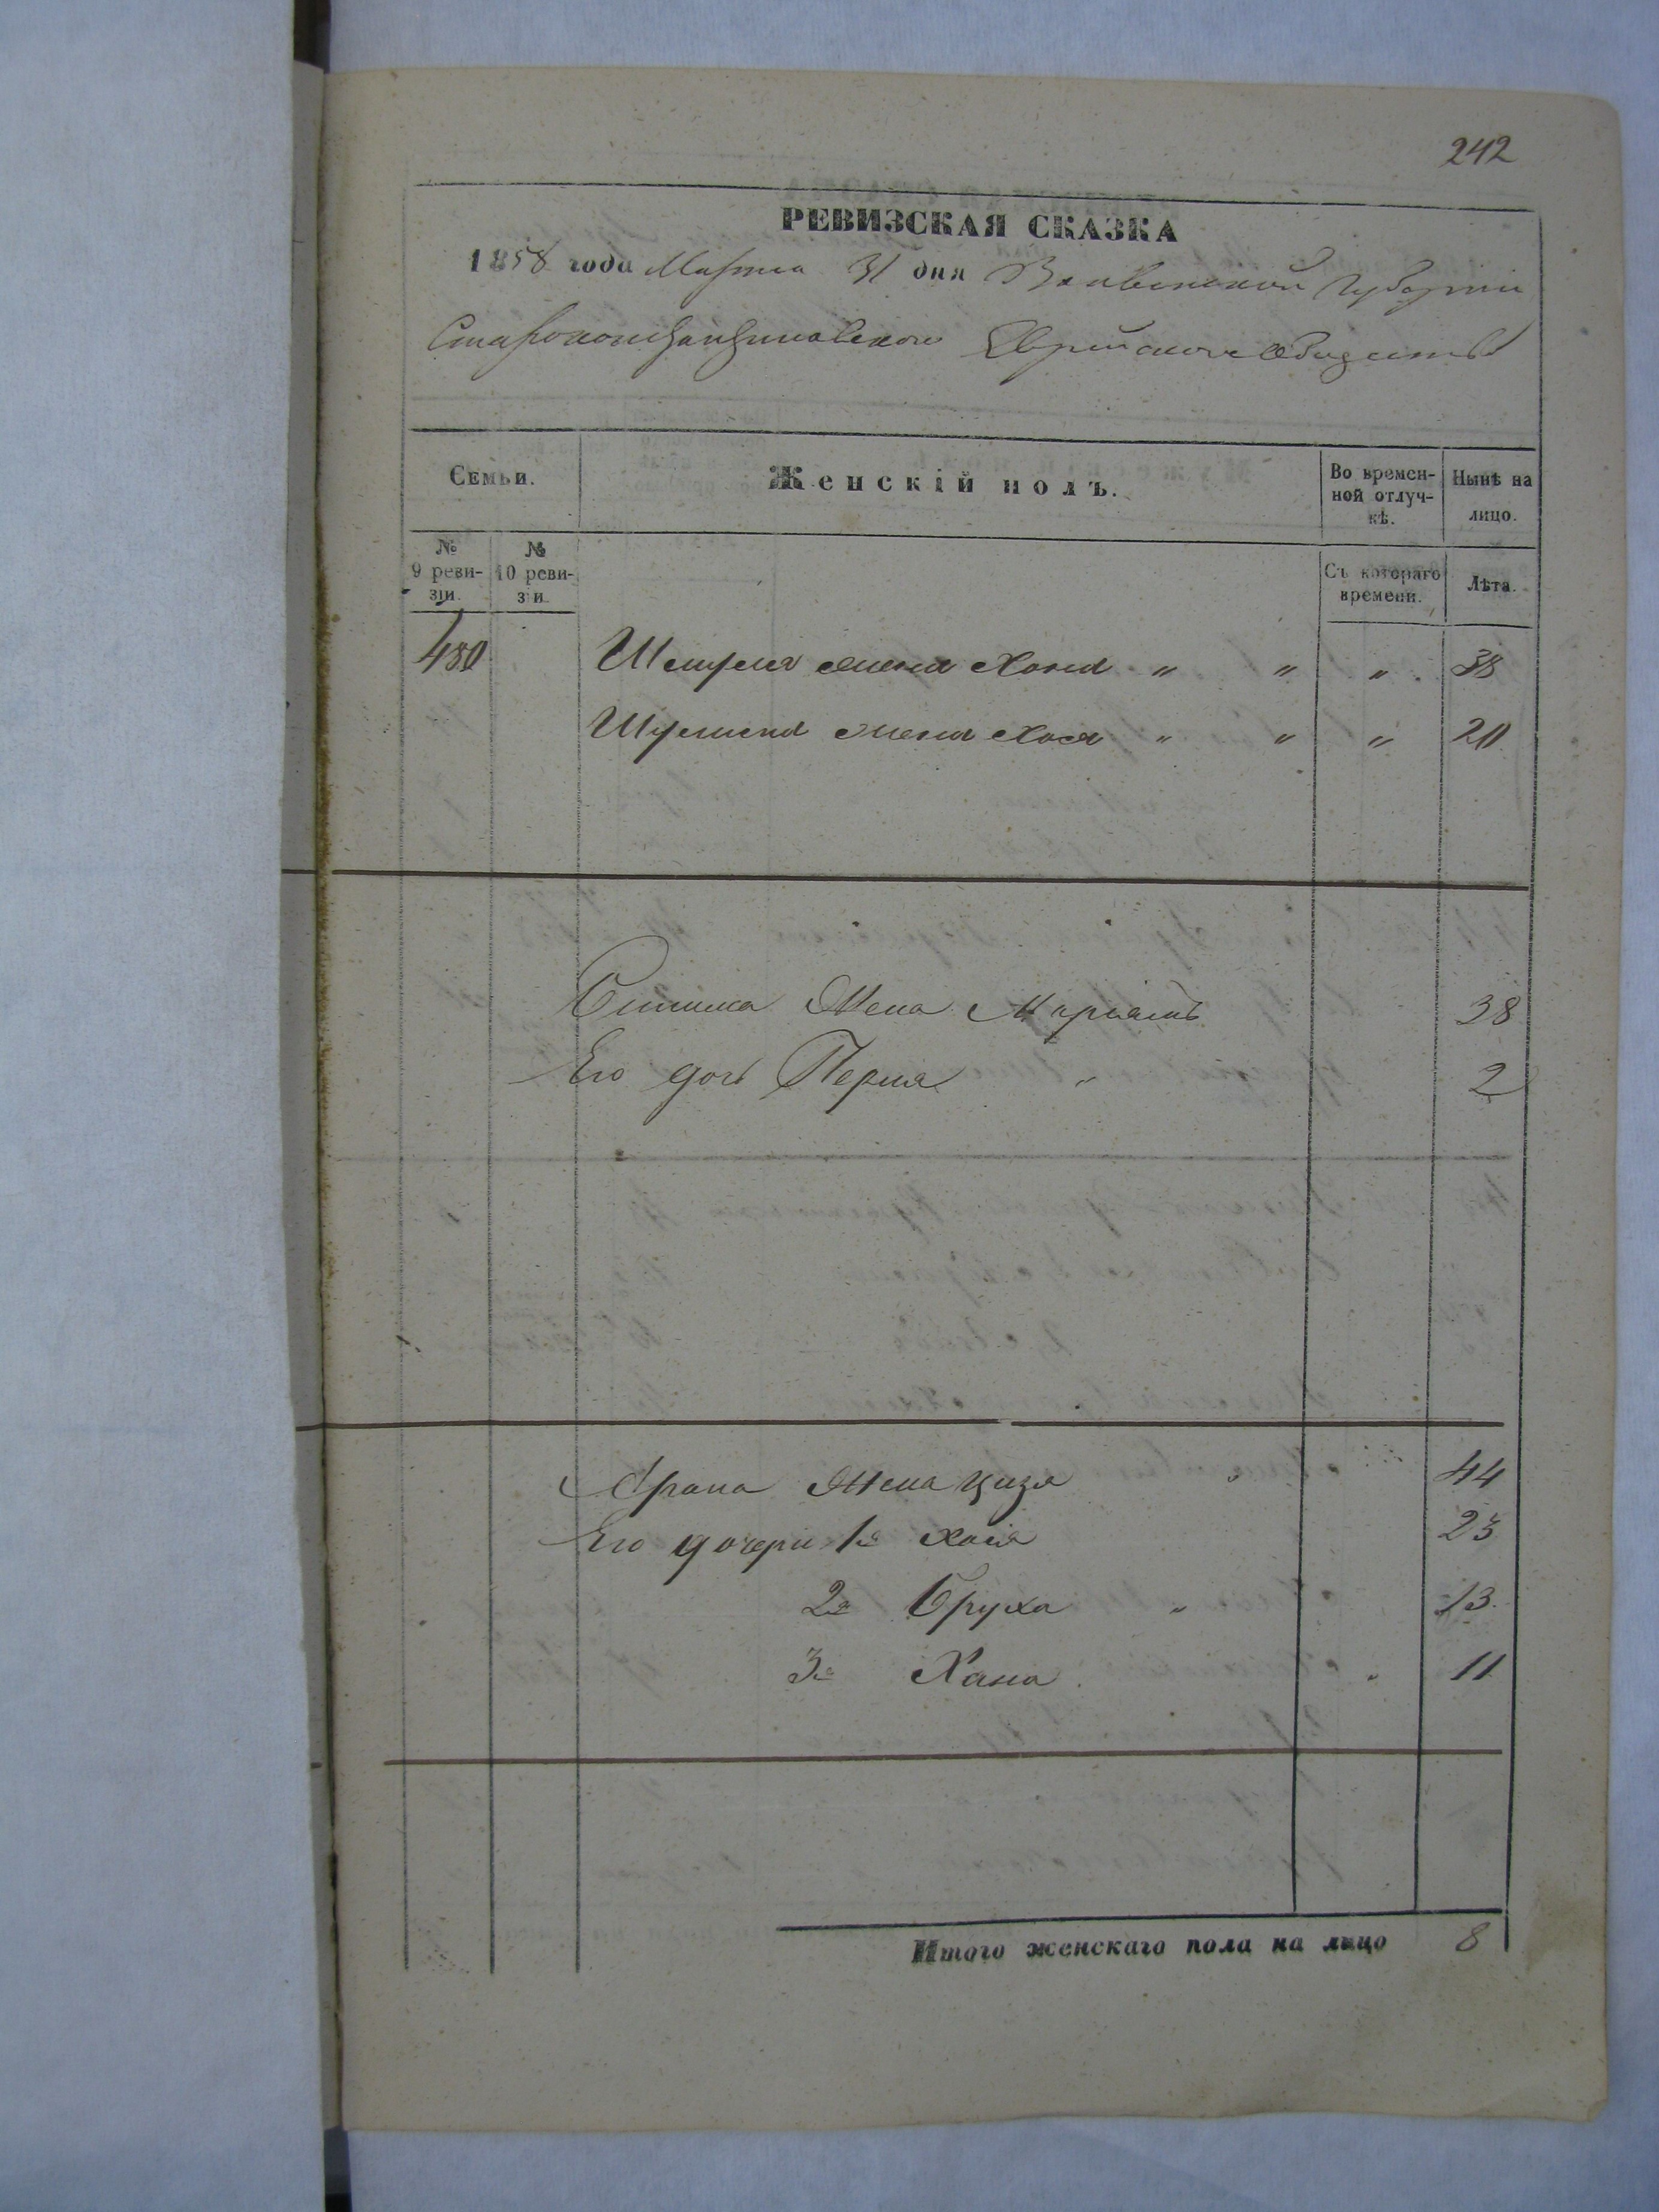 242
РЕВИЗСКАЯ СКАЗКА
1858 года Марта 31 дня Волынской Губернии
Староконстантиновского Еврейского Общества
Семьи.
Женскій полъ.
Во времен-
ной отлуч-
кѣ.
Нынѣ на
лицо.
№
9 реви-
зіи.
№
10 реви-
зіи.
Съ котораго
времени.
Лѣта.
480 жена " " " 38
жена Хася " " " 20
Жена Маріамъ 38
Его дочь Перля " 2
Арона Жена Цизя " 44
Его дочери 1я Хася 23
2я Бруха " 13.
3я Хана " 11
Итого женскаго пола на лицо 8